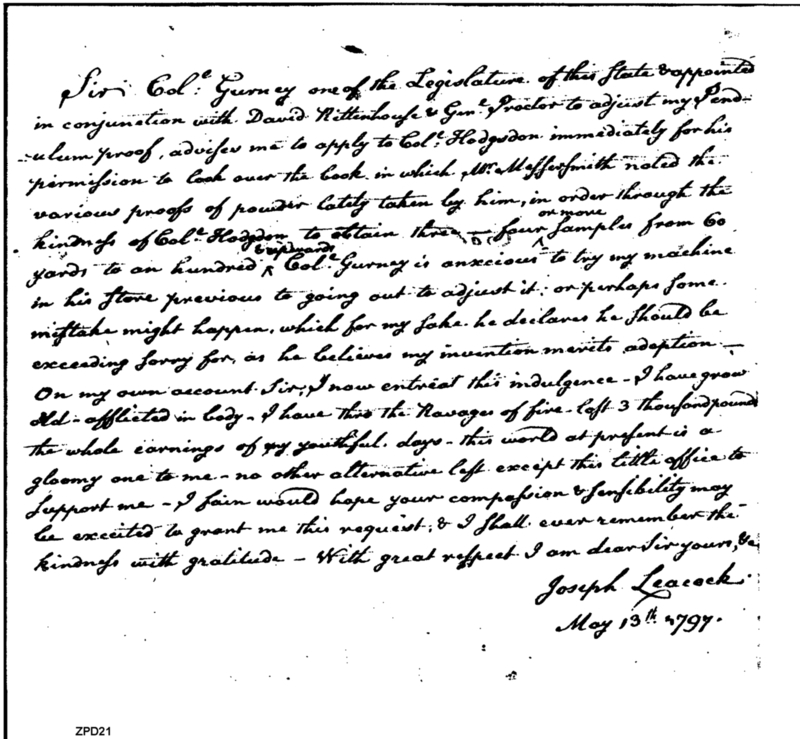 Sir Col:e Gurney one of the Legislature of this State & appointed
in conjunction with David Rittenhouse & Genl. Proctor to adjust my Pend-
-ulum proof, advises me to apply to Col:e Hodgsdon immediately for his
permission to look over the book in which Mr. Messersmith noted the
various proofs of powder lately taken by him, in order through the
or more
kindness of Col:e Hodgdon to obtain three — four ^ samples from 60
& upwards
yards to an hundred ^ Col:e Gurney is anxcious to try my machine
in his store previous to going out to adjust it; or perhaps some
mistake might happen, which for my sake he declares he should be
exceeding sorry for, as he believes my invention merits adoption —
On my own account Sir, I now entreat this indulgence – I have grow
old – afflicted in body – I have thro the Ravages of fire lost 3 thousand pound
the whole earnings of my youthful days – this world at present is a
gloomy one to me – no other alternative left except this little office to
support me – I fain would hope your compassion & sensibility may
be excited to grant me this request, & I shall ever remember the
kindness with gratitude – With great respect I am dear Sir yours, &c
Joseph Leacock.
May 13th 1797.
ZPD21